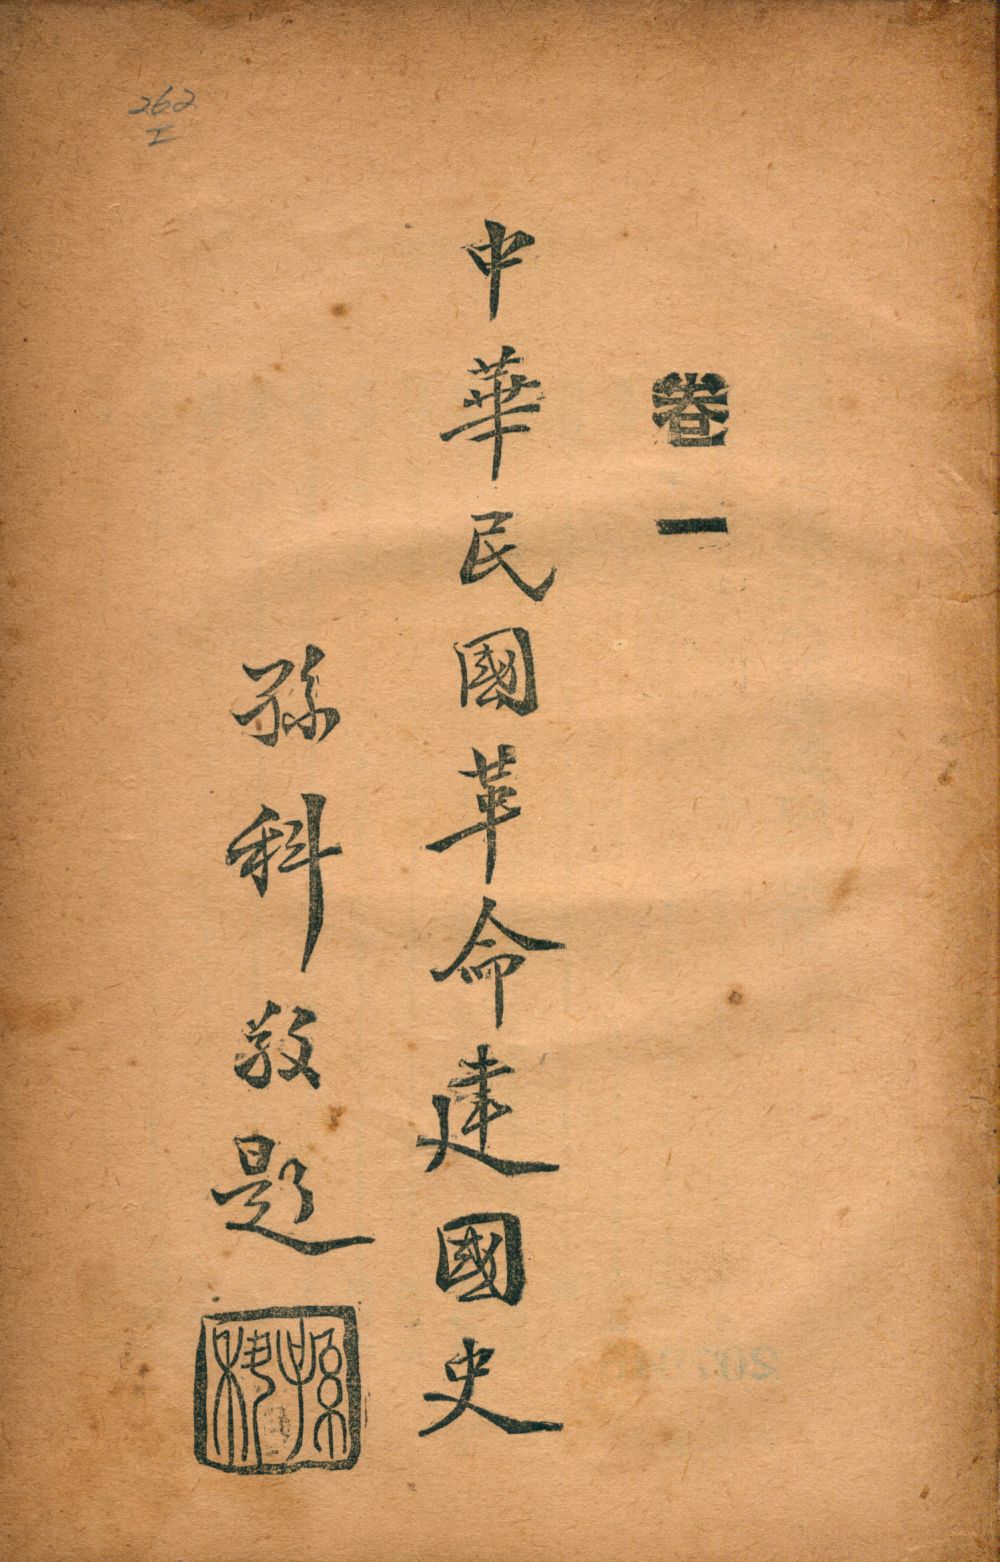 卷一
中華民國革命建國史
孫科敬題
孫科
262
I